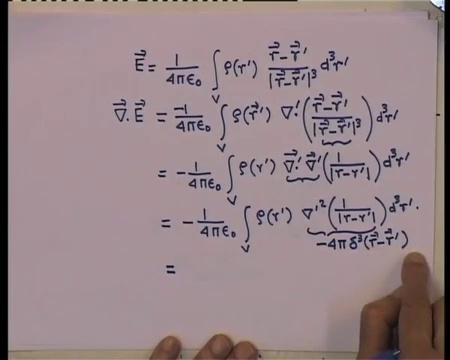 E⃗ = 1/4πε₀ ∫_V ρ(r') (r⃗-r⃗')/|r⃗-r⃗'|³ d³r'
∇⃗.E⃗ = -1/4πε₀ ∫_V ρ(r⃗') ∇'.((r⃗-r⃗')/|r⃗-r⃗'|³) d³r'
= -1/4πε₀ ∫_V ρ(r') ∇⃗'.∇⃗'(1/|r-r'|) d³r'
= -1/4πε₀ ∫_V ρ(r') ∇'²(1/|r-r'|) d³r'.
-4πδ³(r⃗-r⃗')
=